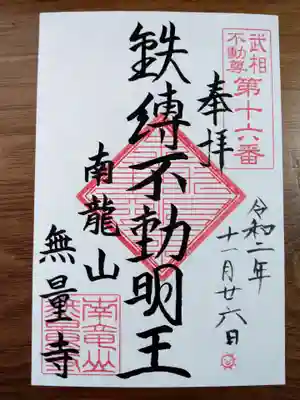 武相
不動尊
第十六番
奉拝
令和二年
十一月廿六日
鉄縛不動明王
南龍山
無量寺
南竜山
無量寺